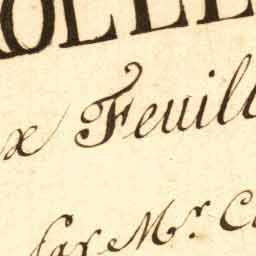 OLLE
x Feuill
par Mr. C